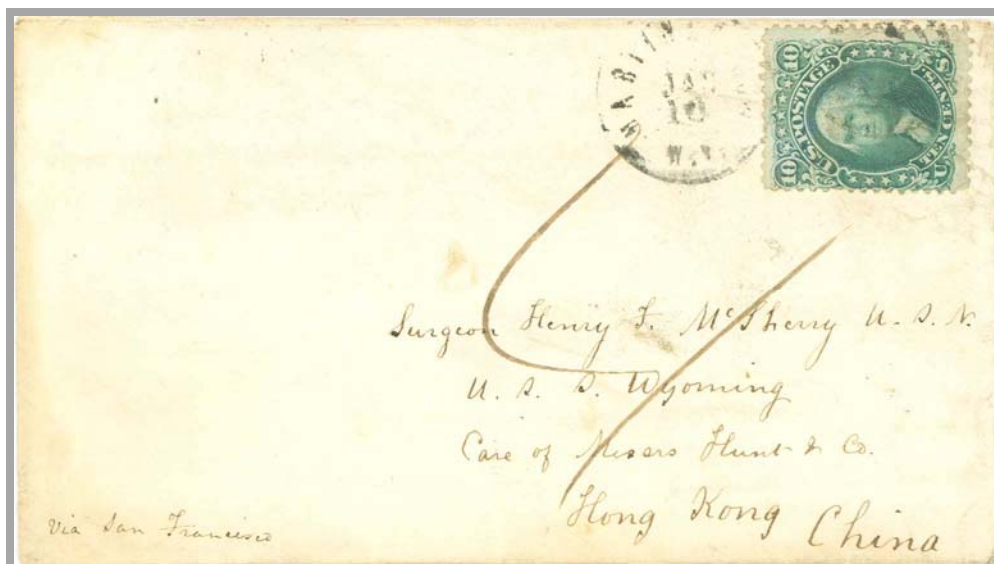 10
10 U.S. POSTAGE 10
TEN CENTS.
U S
Surgeon Henry F. McSherry U. S. N.
U. S. S. Wyoming
Care of Messrs Hunt & Co.
Hong Kong
China
Via San Francisco